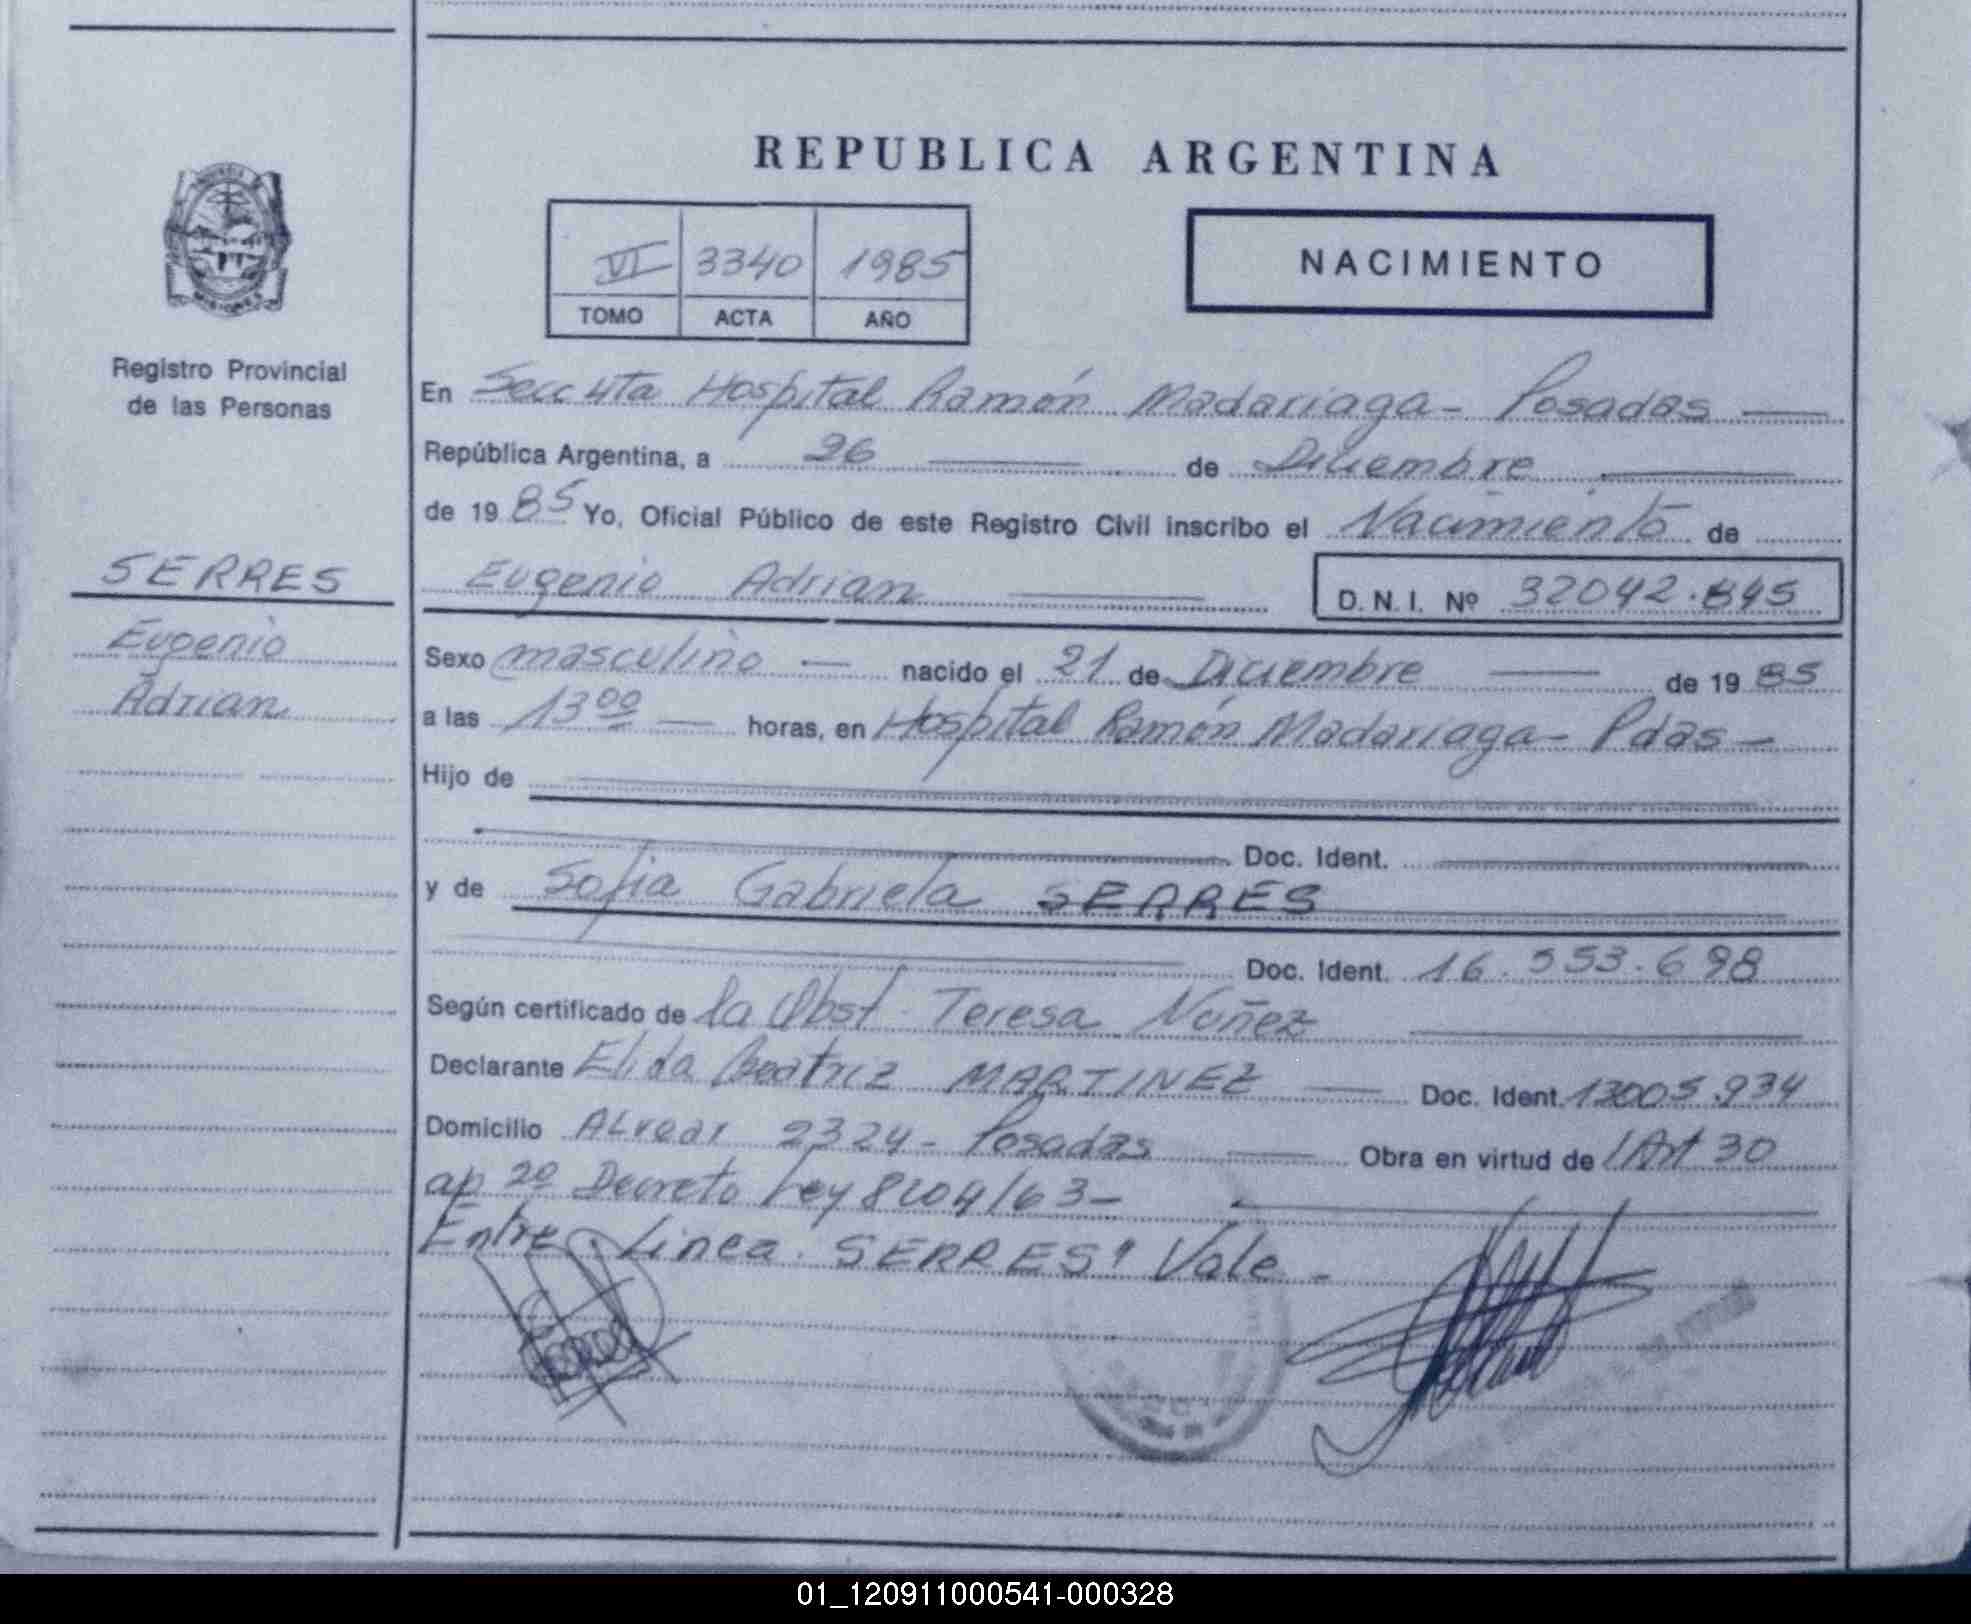 REPUBLICA ARGENTINA
VI 3340 1985
TOMO ACTA AÑO
NACIMIENTO
MISIONES
Registro Provincial
de las Personas
SERRES
Eugenio
Adrian
En Secc 4ta Hospital Ramón Madariaga - Posadas
República Argentina, a 26 de Diciembre
de 1985 Yo, Oficial Público de este Registro Civil inscribo el Nacimiento de
Eugenio Adrian D. N. I. Nº 32042.845
Sexo masculino nacido el 21 de Diciembre de 1985
a las 13 00 horas, en Hospital Ramón Madariaga - Pdas -
Hijo de
Doc. Ident.
y de Sofia Gabriela SERRES
Doc. Ident. 16.553.698
Según certificado de la Obst. Teresa Nuñez
Declarante Elida Beatriz MARTINEZ Doc. Ident. 13005.934
Domicilio Alvear 2324 - Posadas Obra en virtud de l Art 30
ap 2º Decreto Ley 8204/63 -
Entre Linea. SERRES" Vale -
01_120911000541-000328